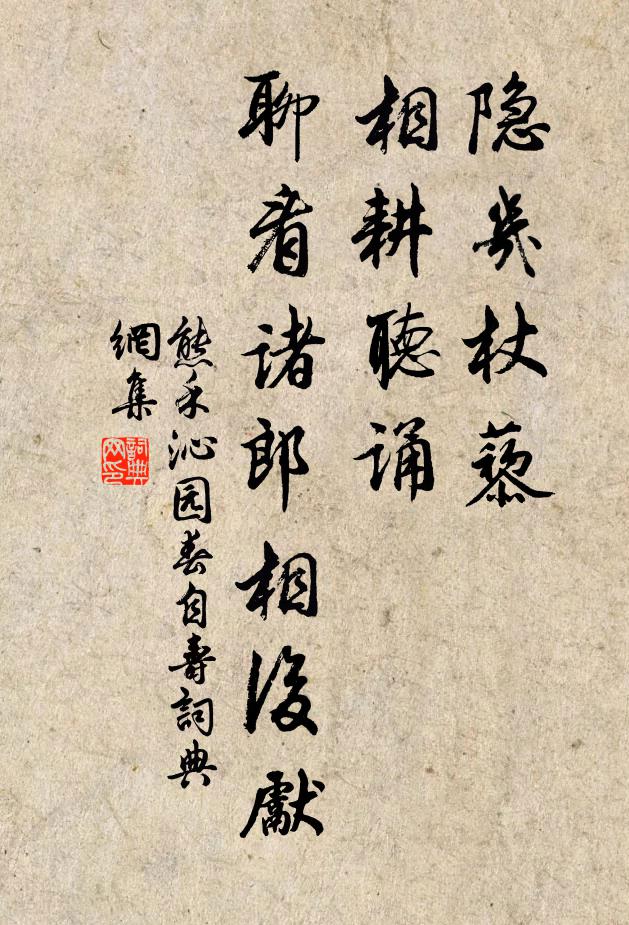 隐几杖藜
相耕聽诵
聊看诸郎相後獻
熊禾沁园春自壽詞典
網集
詞典网印